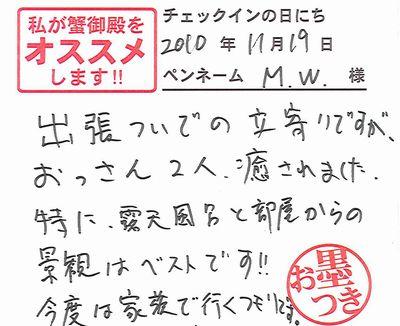 私が蟹御殿を
オススメ
します!!
チェックインの日にち
2010 年 11月 19日
ペンネーム M.W. 様
出張ついでの立寄りですが、
おっさん2人、癒されました。
特に、露天風呂と部屋からの
景観はベストです!!
今度は家族で行くつもりです。
お墨つき